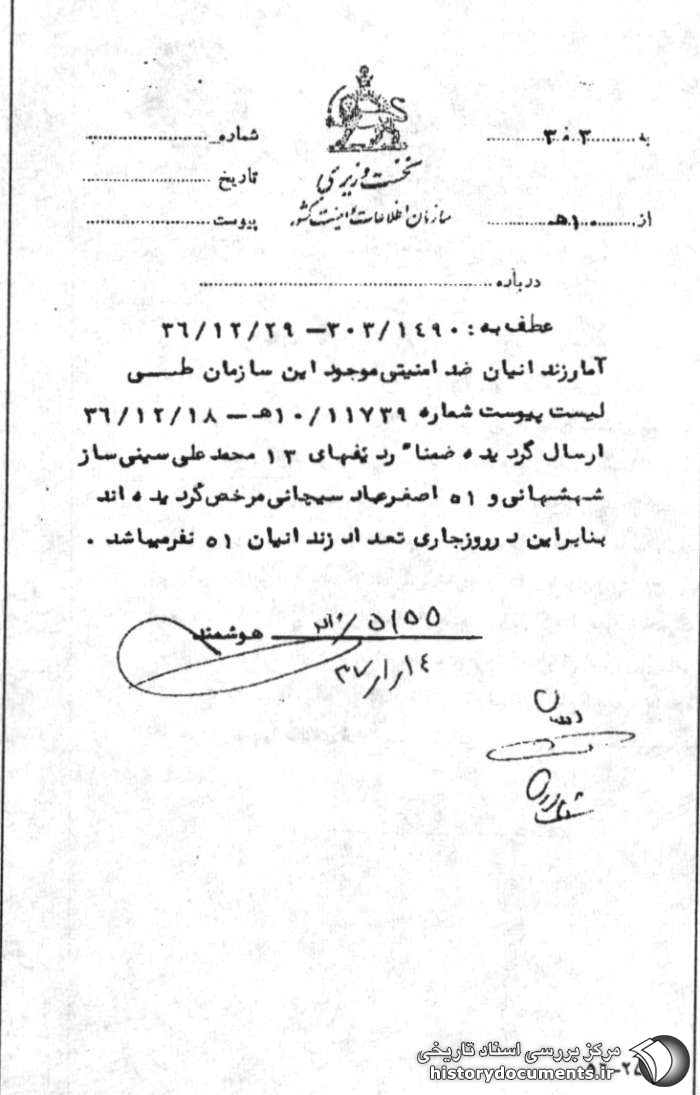 نخست وزیری
سازمان اطلاعات و امنیت کشور
به ۳۰۳
از ۱۰ هـ
شماره
تاریخ
پیوست
درباره
عطف به : ۳۰۳/۱۴۹۰ – ۳۶/۱۲/۲۹
آمار زندانیان ضد امنیتی موجود این سازمان طی
لیست پیوست شماره ۱۰/۱۱۷۳۹هـ – ۳۶/۱۲/۱۸
ارسال گردیده ضمناً ردیفهای ۱۳ محمد علی سینی ساز
شهشهانی و ۵۱ اصغر عباد سیچانی مرخص گردیده اند
بنابراین در روز جاری تعداد زندانیان ۵۱ نفر میباشد .
هوشمند
۳۷/۱/۱۴
مرکز بررسی اسناد تاریخی
historydocuments.ir